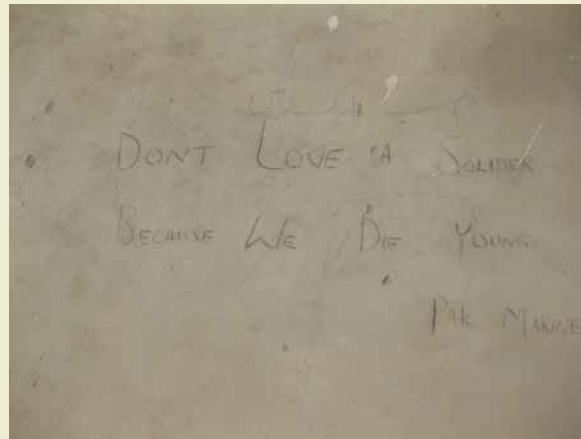 DONT LOVE A SOLIDIER
BECAUSE WE DIE YOUNG
PAK MARINE